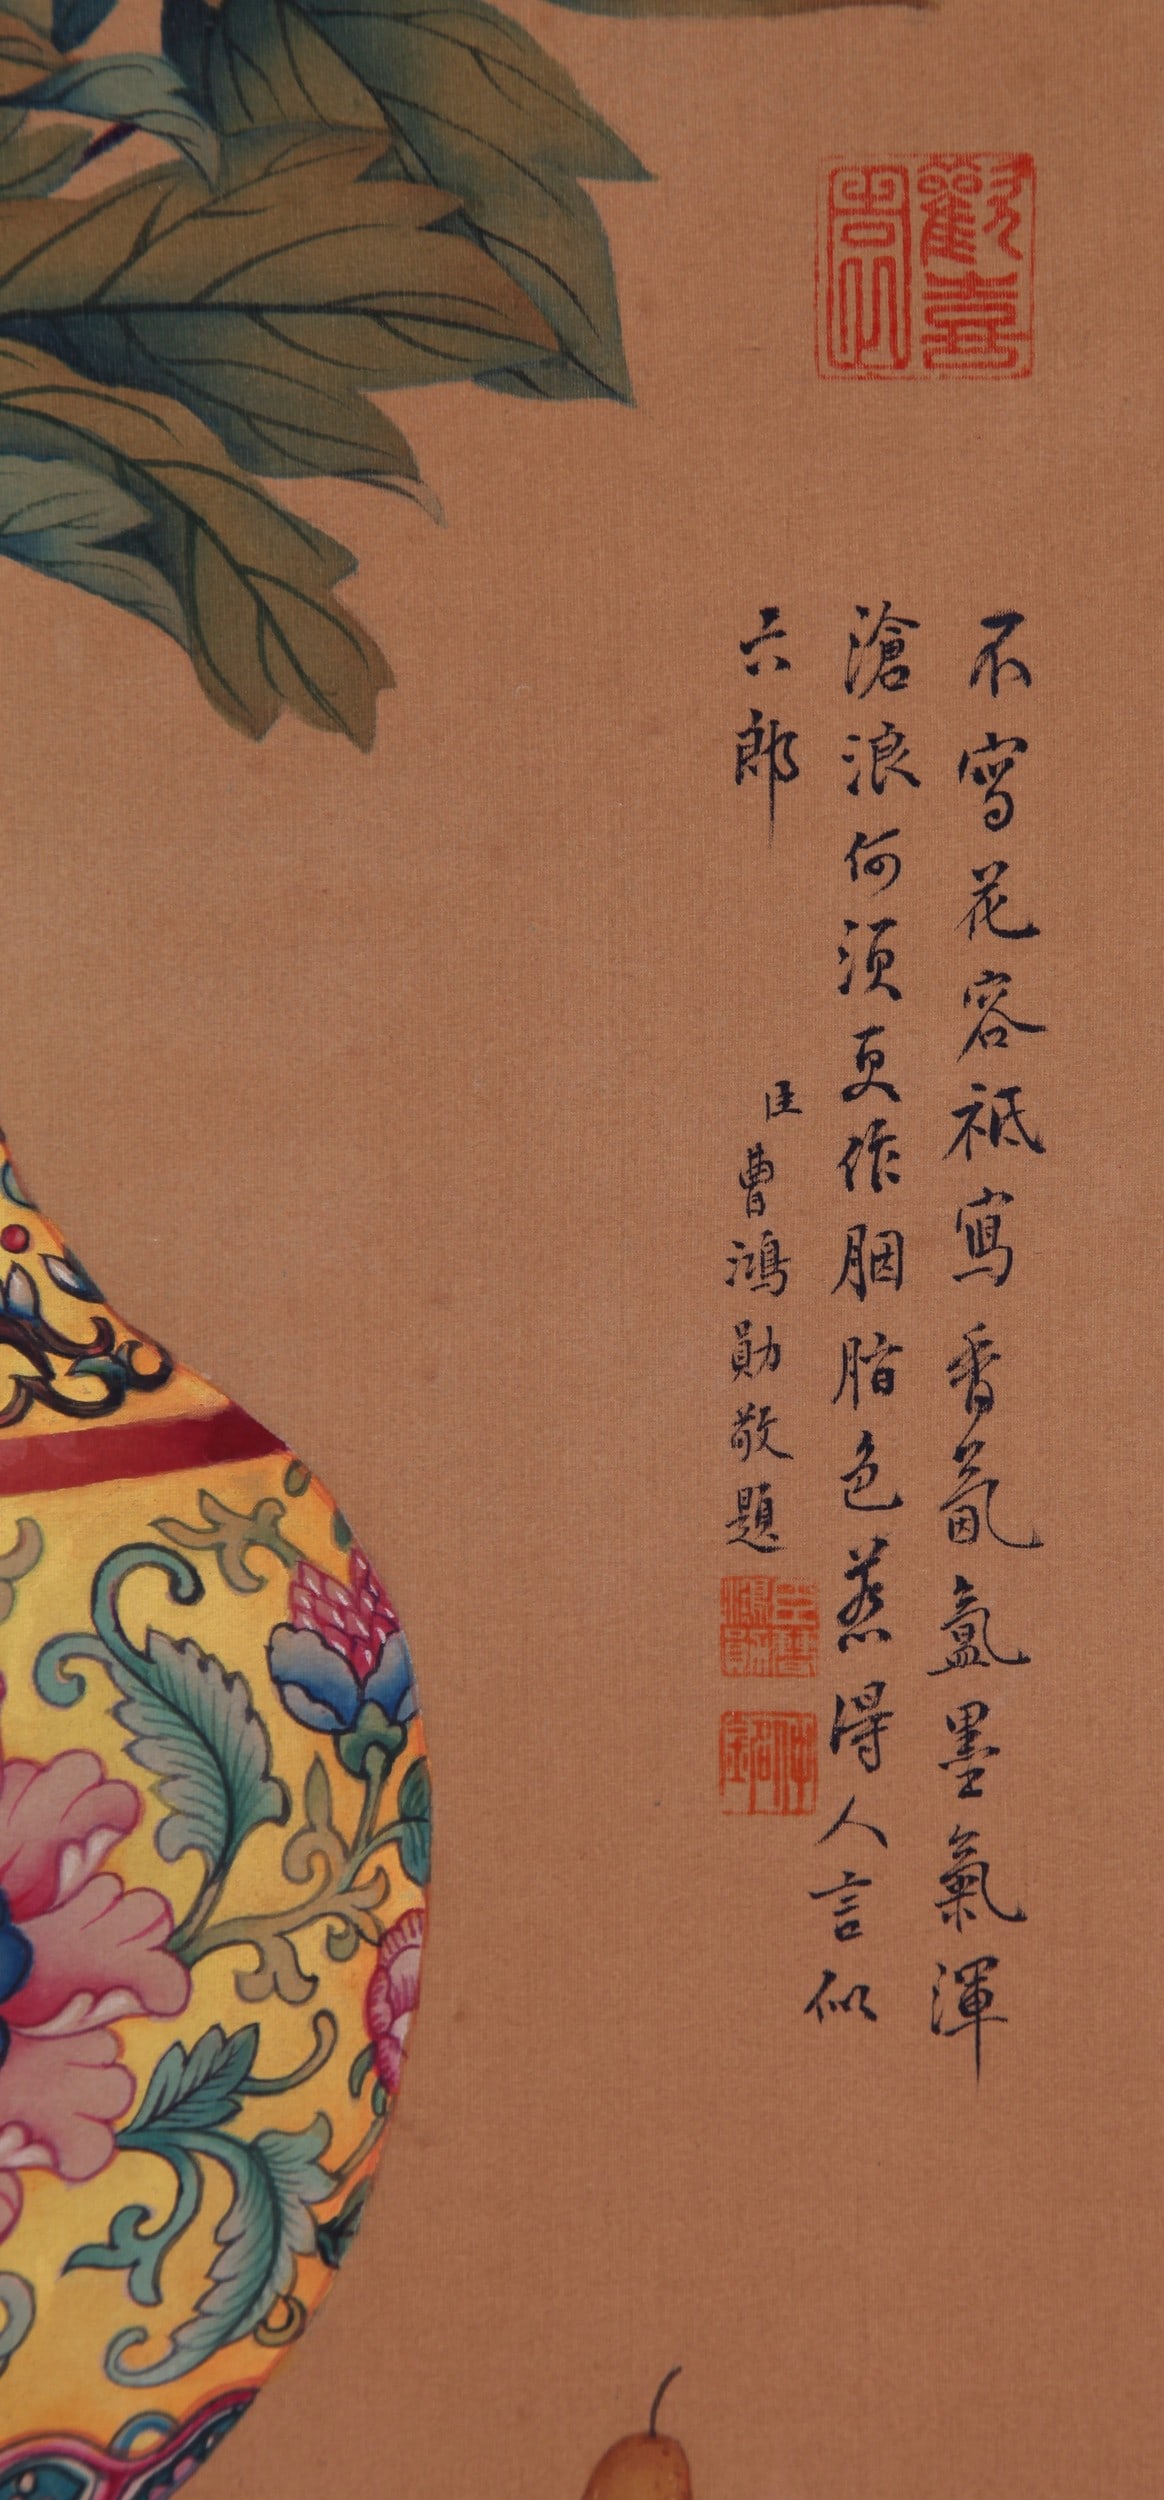 不寫花容祗寫香氤氳墨氣渾
滄浪何須更作胭脂色惹得人言似
六郎
臣曹鴻勛敬題